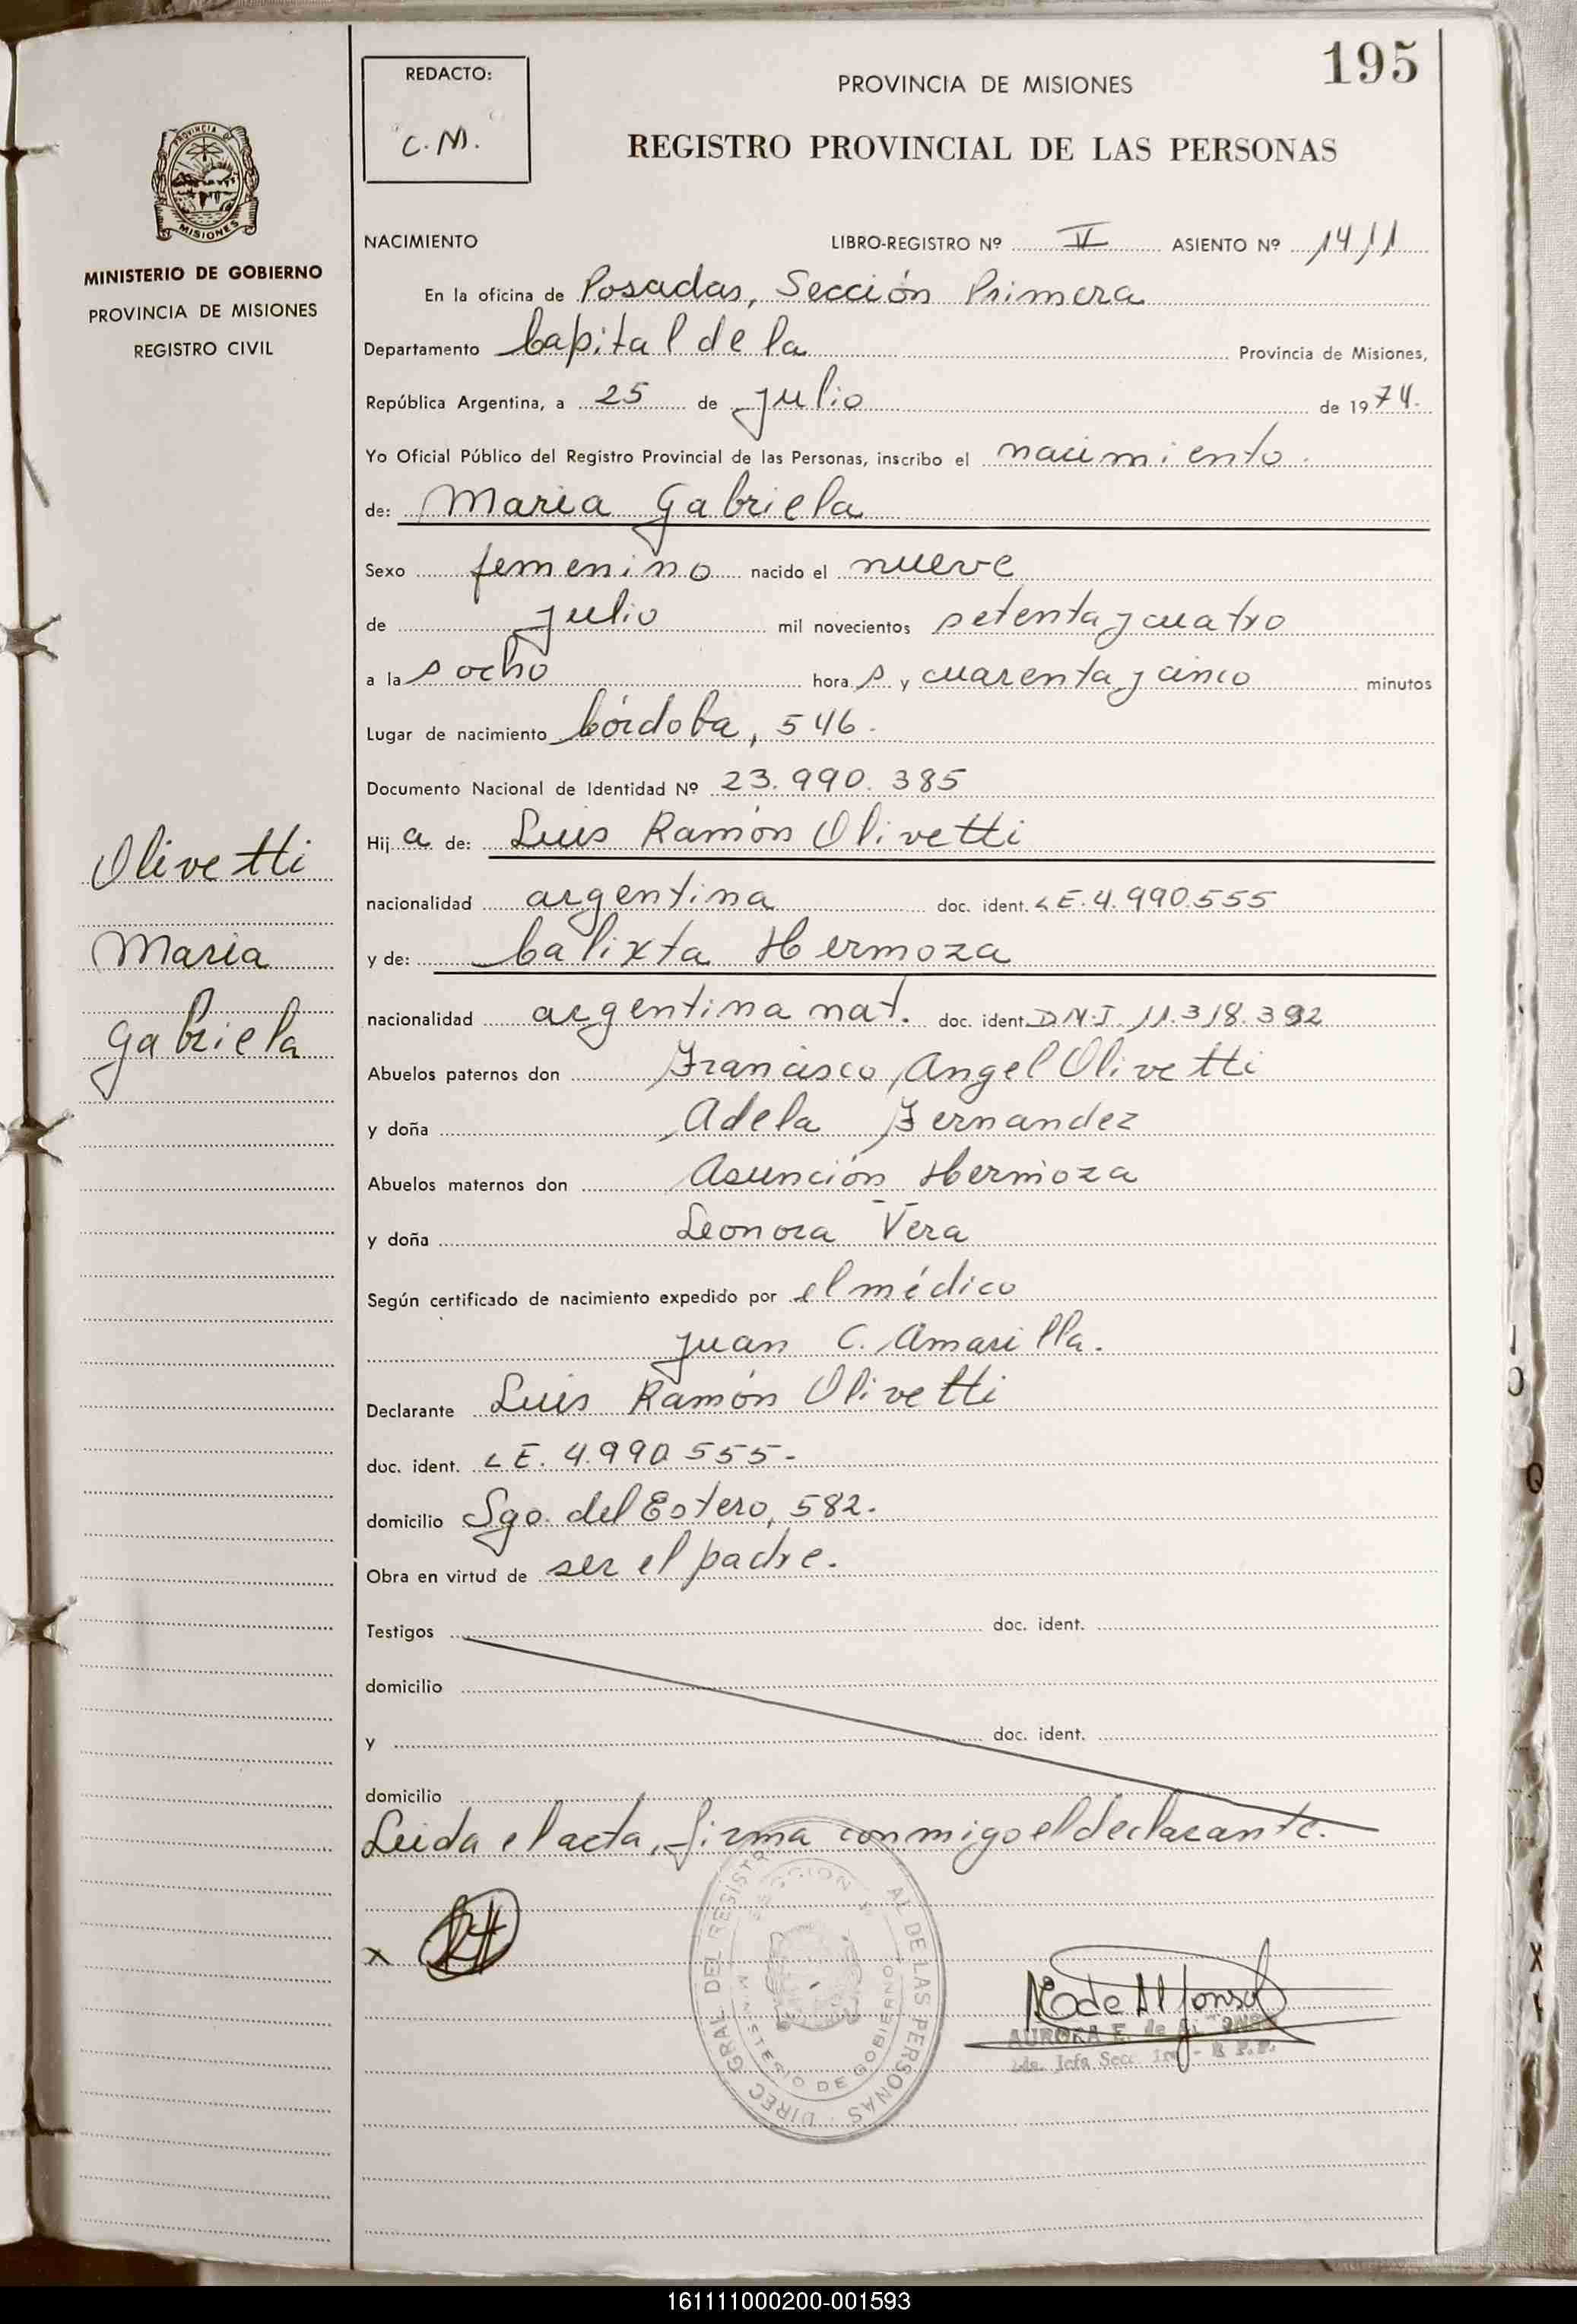 195
REDACTO:
C.M.
PROVINCIA DE MISIONES
REGISTRO PROVINCIAL DE LAS PERSONAS
PROVINCIA DE
MISIONES
MINISTERIO DE GOBIERNO
PROVINCIA DE MISIONES
REGISTRO CIVIL
NACIMIENTO LIBRO-REGISTRO Nº V ASIENTO Nº 1411
En la oficina de Posadas, Sección Primera
Departamento Capital de la Provincia de Misiones,
República Argentina, a 25 de julio de 1974.
Yo Oficial Público del Registro Provincial de las Personas, inscribo el nacimiento.
de: Maria Gabriela
Sexo femenino nacido el nueve
de julio mil novecientos setenta y cuatro
a las ocho horas y cuarenta y cinco minutos
Lugar de nacimiento Córdoba, 546.
Documento Nacional de Identidad Nº 23.990.385
Hija de: Luis Ramón Olivetti
nacionalidad argentina doc. ident. L E. 4.990.555
y de: Calixta Hermoza
nacionalidad argentina nat. doc. ident. D N.I. 11.318.392
Abuelos paternos don Francisco Angel Olivetti
y doña Adela Fernandez
Abuelos maternos don Asunción Hermoza
y doña Leonora Vera
Según certificado de nacimiento expedido por el médico
Juan C. Amarilla.
Declarante Luis Ramón Olivetti
doc. ident. L E. 4.990 555-
domicilio Sgo. del Estero, 582.
Obra en virtud de ser el padre.
Testigos doc. ident.
domicilio
y doc. ident.
domicilio
Leida el acta, firma conmigo el declarante.
Olivetti
Maria
Gabriela
x
DIREC GRAL DEL REGISTRO AL DE LAS PERSONAS
MINISTERIO DE GOBIERNO
E de Alfonso
AURORA E. de
2da. Jefa Secc. 1ra - R P.P.
161111000200-001593